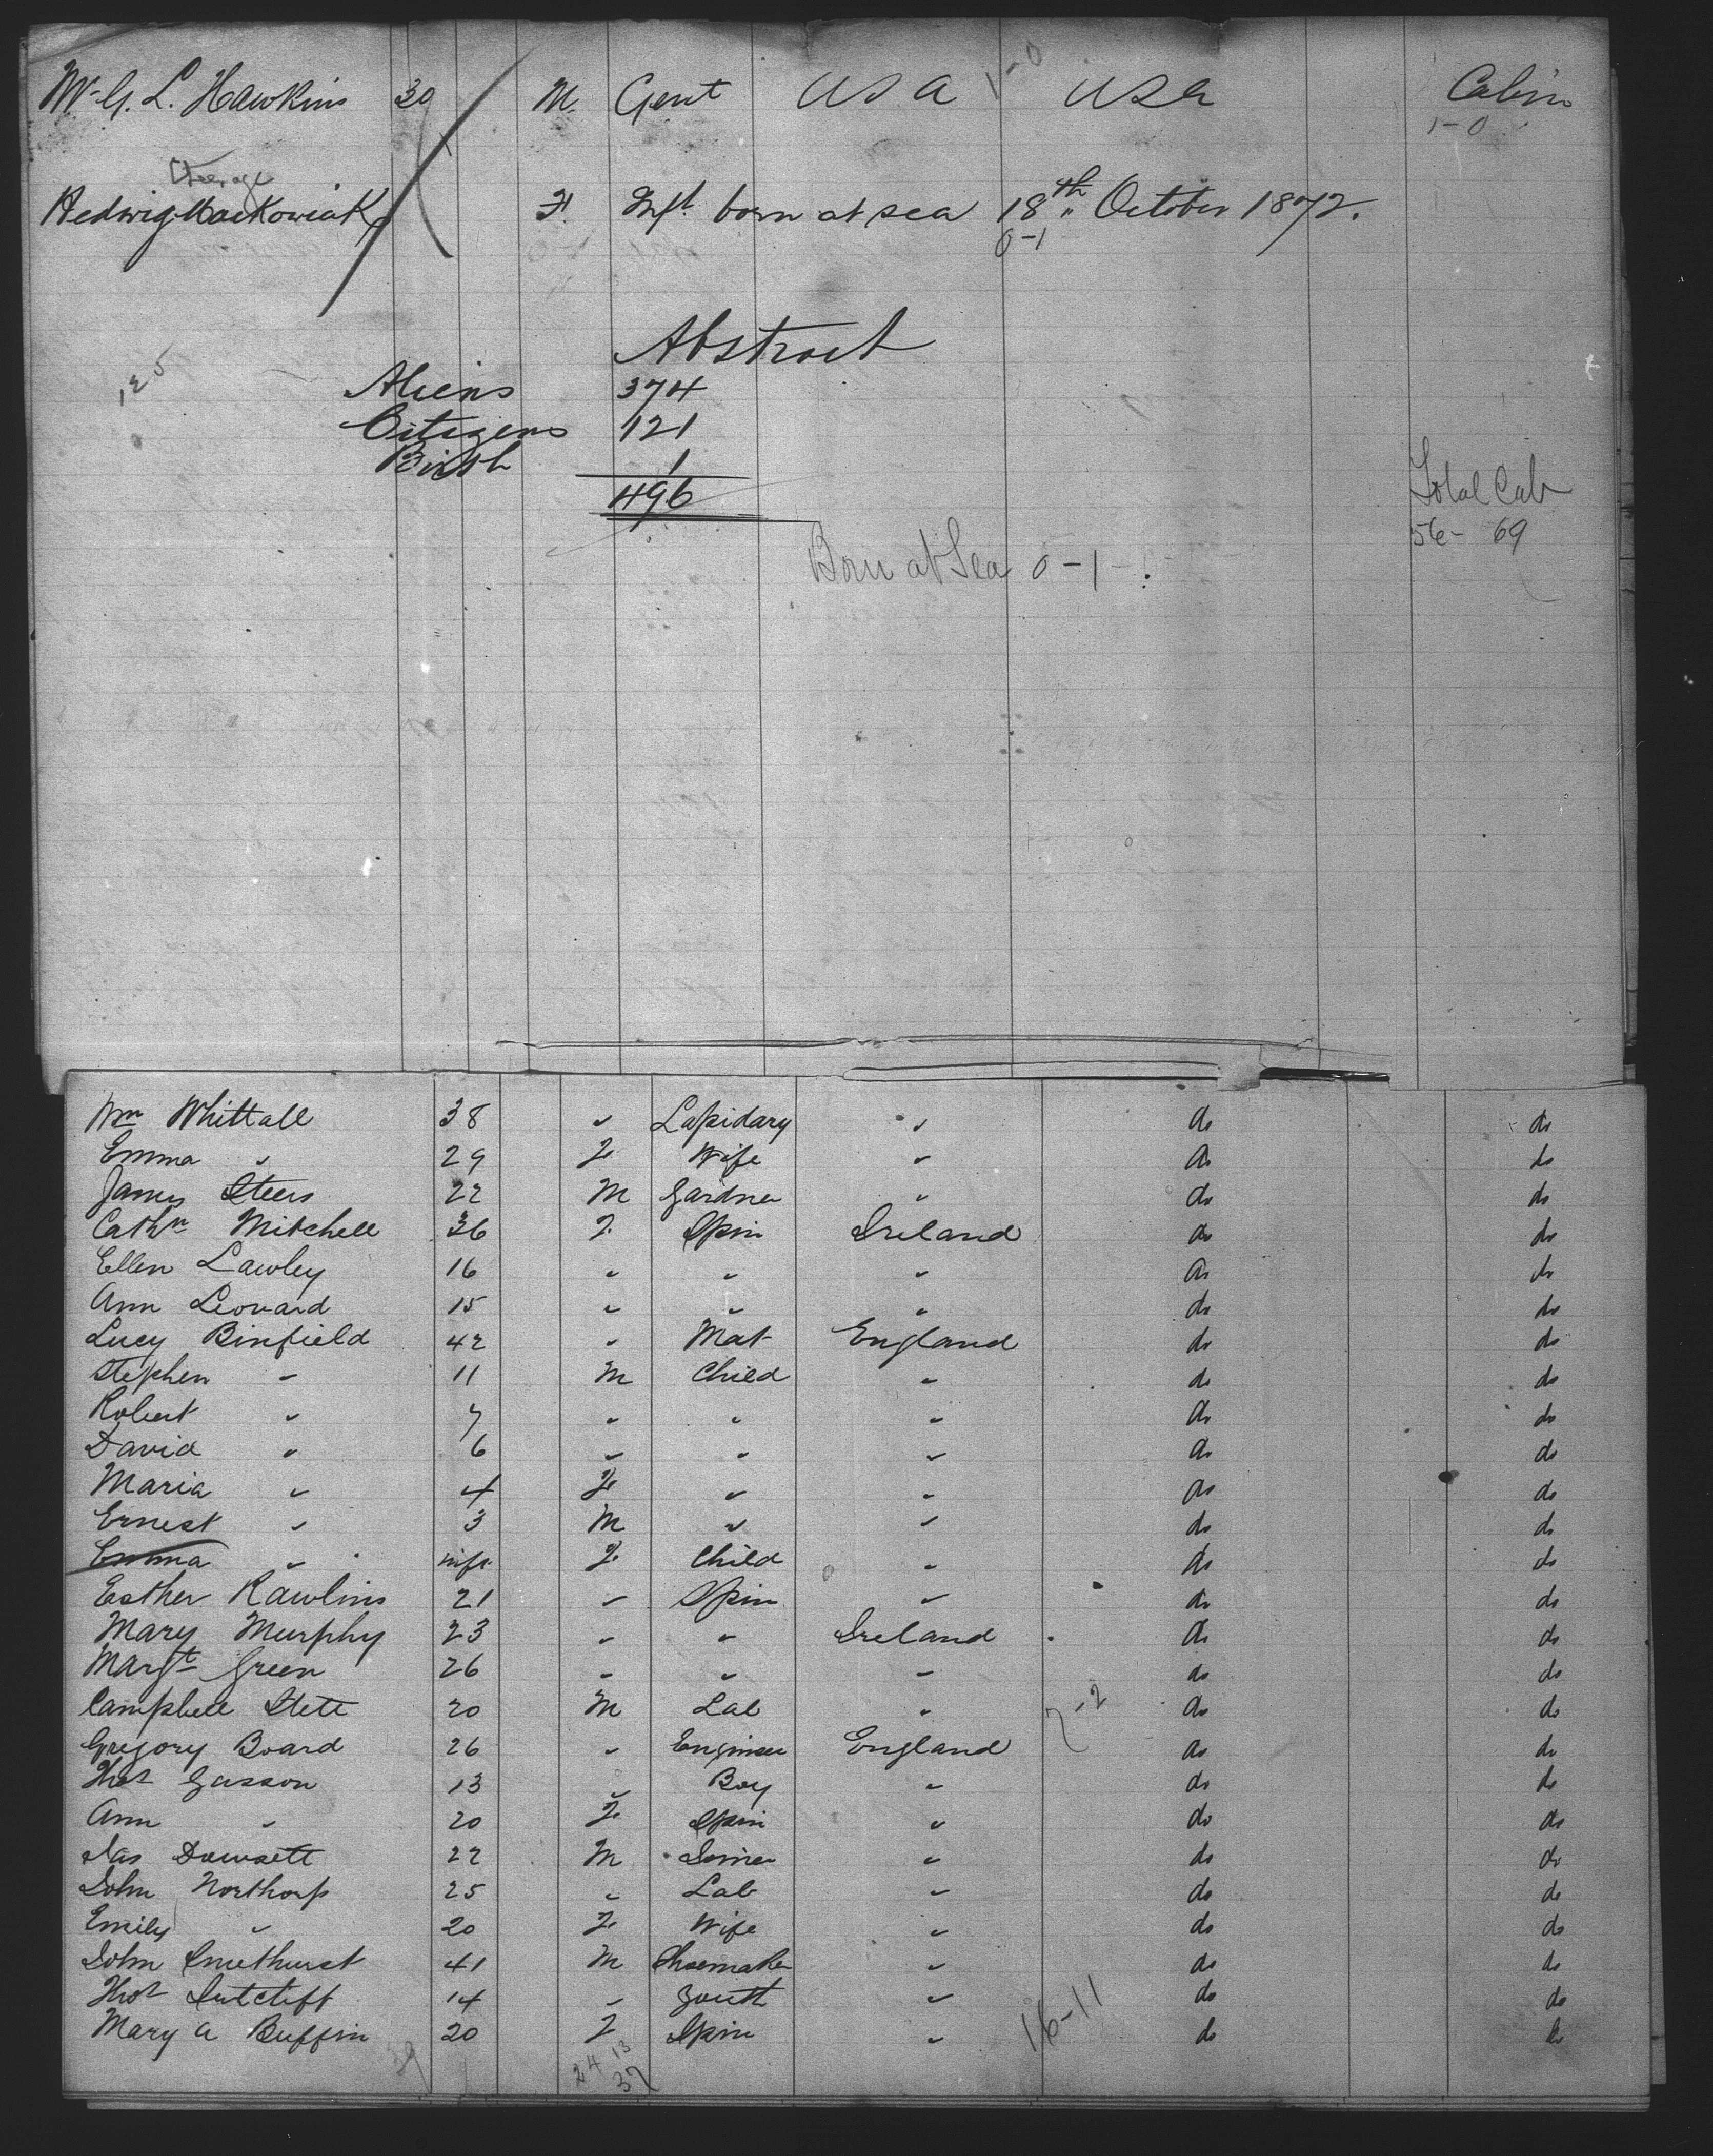 Mr G. L. Hawkins 30 M. Gent USA 1-0 USA Cabin
1-0
Steerage
Hedwig Mackowiak F. Inft. born at sea 18th October 1872.
0-1
Abstract
125
Aliens 374
Citizens 121
Birth 1
496
Total Cab
56- 69
Born at Sea 0-1
Wm Whittall 38 " Lapidary " do do
Emma " 29 F Wife " do do
James Steers 22 M Gardner " do do
Cathn Mitchell 36 F Spin Ireland do do
Ellen Lawley 16 " " " do do
Ann Leonard 15 " " " do do
Lucy Binfield 42 " Mat England do do
Stephen " 11 M Child " do do
Robert " 7 " " " do do
David " 6 " " " do do
Maria " 4 F " " do do
Ernest " 3 M " " do do
Emma " inft F Child " do do
Esther Rawlins 21 " Spin " do do
Mary Murphy 23 " " Ireland do do
Margt Green 26 " " " do do
Campbell 20 M Lab " 7-2 do do
Gregory Board 26 " Engineer England do do
Thos Gasson 13 " Boy " do do
Ann " 20 F Spin " do do
Jas Dowsett 22 M " do do
John Northorp 25 " Lab " do do
Emily " 20 F Wife " do do
John Smethurst 41 M Shoemaker " do do
Thos Sutcliff 14 " Youth " do do
Mary A Buffin 20 F Spin " 16-11 do do
39 24 13
37